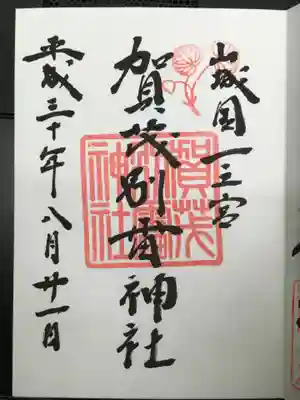 山城国一之宮
賀茂別雷神社
平成三十年八月廿一日
賀茂別雷神社